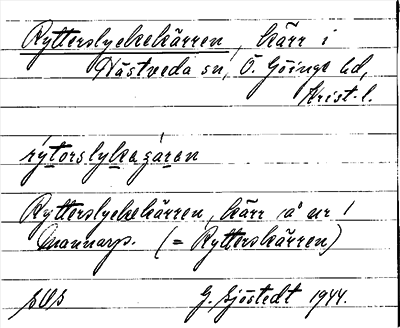 Rytterslyckekärren, kärr i
Västveda sn, Ö. Göinge hd,
Krist. l.
rýtorslykasáran
Rytterslyckekärren, kärr å nr 1
Mannarp. (= Rytterskärren)
G. Sjöstedt 1944.